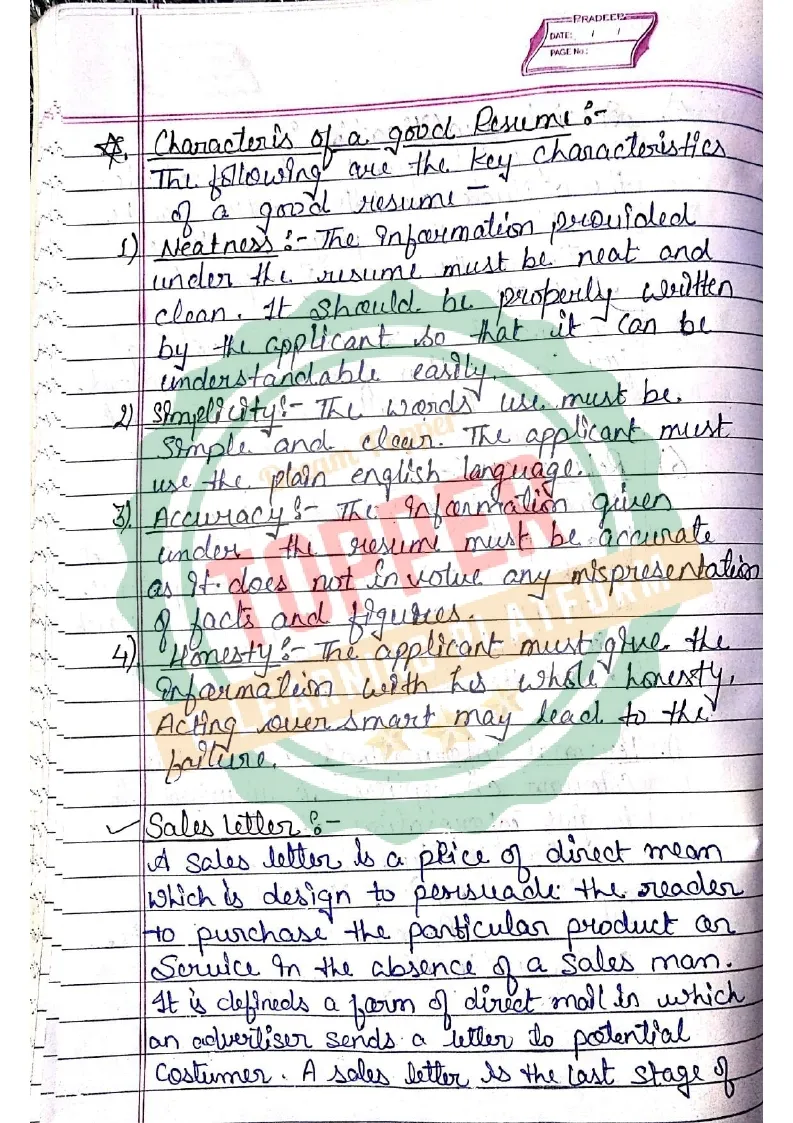 PRADEEP
DATE: / /
PAGE No:
Characteris of a good Resume :-
The following are the key characteristics
of a good resume -
1) Neatness :- The Information provided
under the resume must be neat and
clean. It should be properly written
by the applicant so that it can be
understandable easily.
2) Simplicity :- The words use must be
simple and clear. The applicant must
use the plain english language.
3) Accuracy :- The Information given
under the resume must be accurate
as it does not involve any mispresentation
of facts and figures.
4) Honesty :- The applicant must give the
Information with his whole honesty.
Acting over smart may lead to the
failure.
Sales letter :-
A sales letter is a piece of direct mean
which is design to persuade the reader
to purchase the particular product or
Service in the absence of a sales man.
It is defineds a form of direct mail in which
an advertiser sends a letter to potential
costumer. A sales letter is the last stage of
Dream Topper
TOPPER
LEARNING PLATFORM